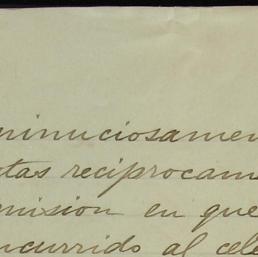 minuciosamen
tas reciprocam
misión en que
ncurrido al cele